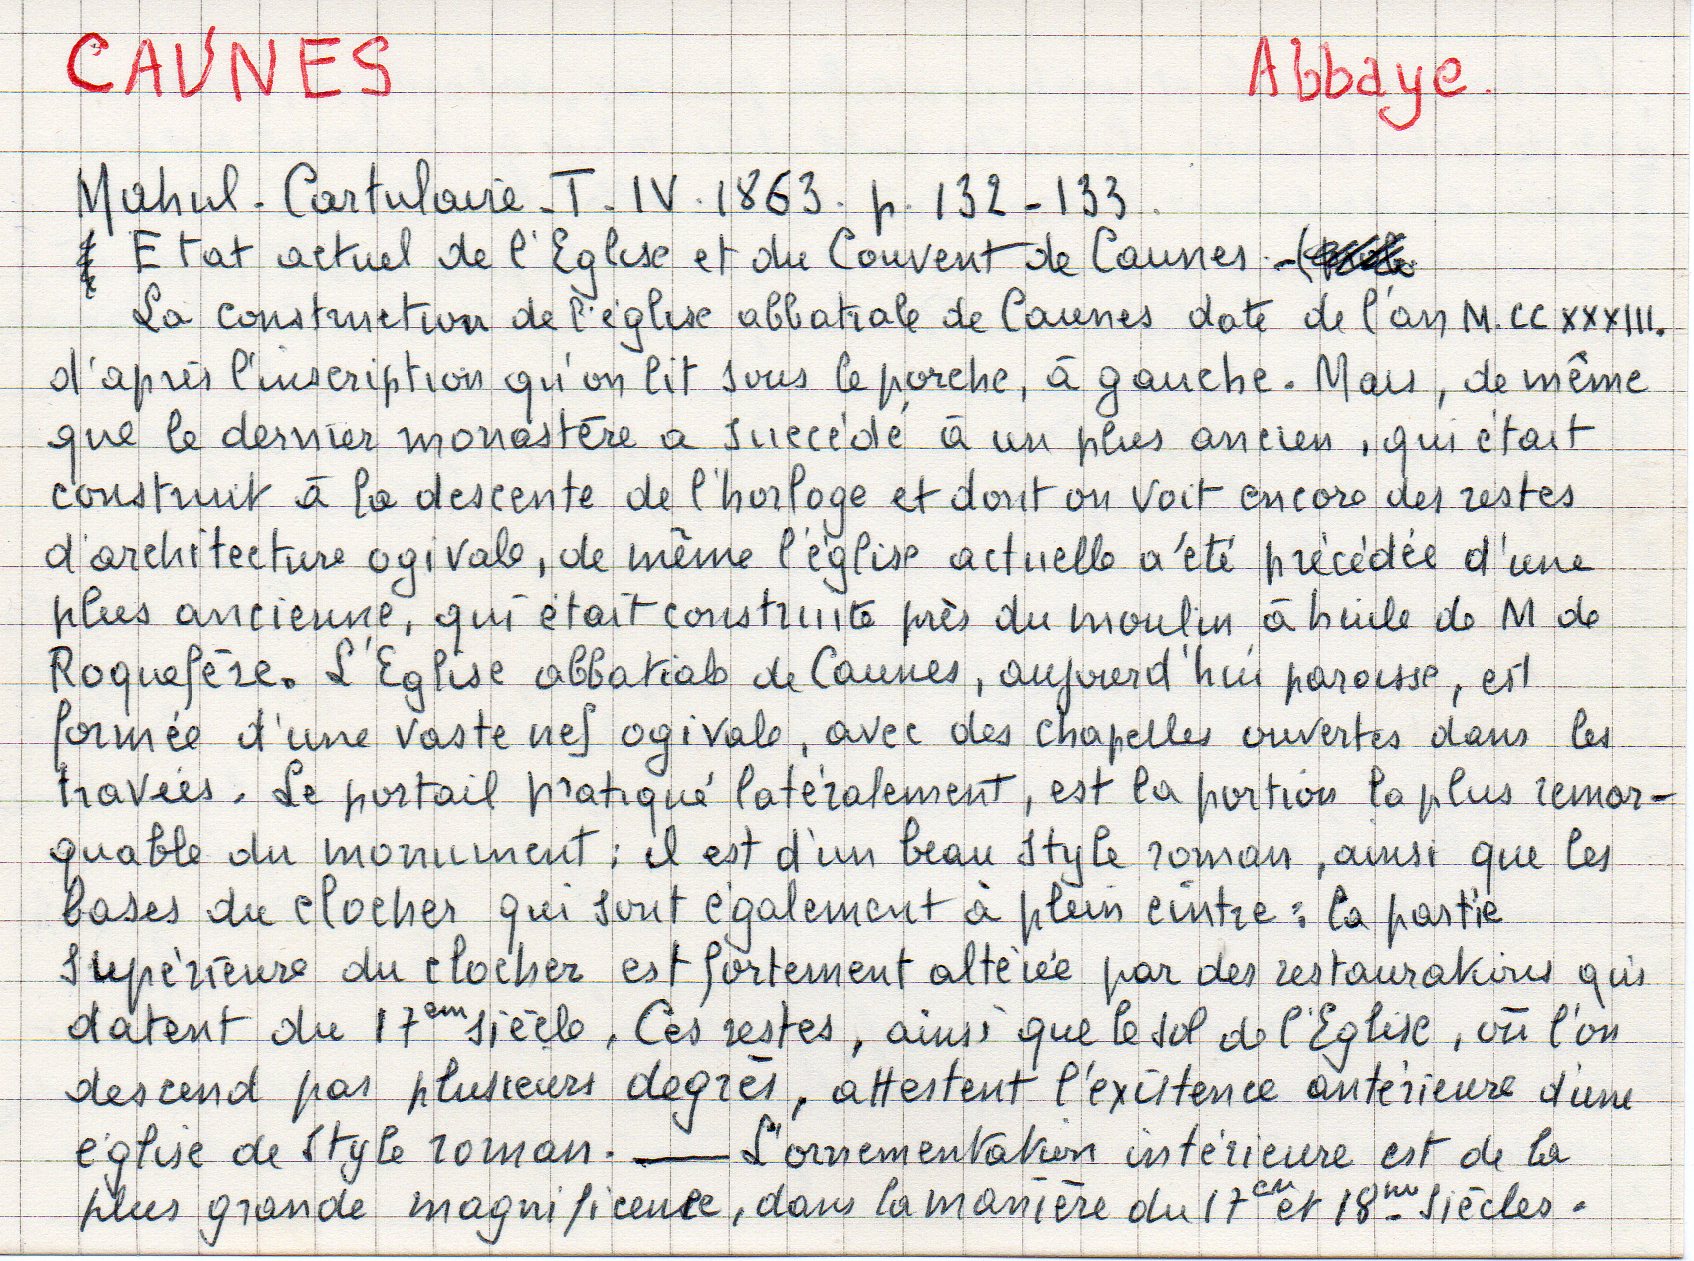 CAUNES Abbaye.
Mahul - Cartulaire - T. IV. 1863. p. 132-133.
Etat actuel de l'Eglise et du Couvent de Caunes -
La construction de l'église abbatiale de Caunes date de l'an M.CCXXXIII.
d'après l'inscription qu'on lit sous le porche, à gauche. Mais, de même
que le dernier monastère a succédé à un plus ancien, qui était
construit à la descente de l'horloge et dont on voit encore des restes
d'architecture ogivale, de même l'église actuelle a été précédée d'une
plus ancienne, qui était construite près du moulin à huile de M de
Roquefère. L'Eglise abbatiale de Caunes, aujourd'hui paroisse, est
formée d'une vaste nef ogivale, avec des chapelles ouvertes dans les
travées. Le portail pratiqué latéralement, est la portion la plus remar-
quable du monument ; il est d'un beau style roman, ainsi que les
bases du clocher qui sont également à plein cintre : la partie
supérieure du clocher est fortement altérée par des restaurations qui
datent du 17em siècle. Ces restes, ainsi que le sol de l'Eglise, où l'on
descend par plusieurs degrés, attestent l'existence antérieure d'une
église de style roman. — L'ornementation intérieure est de la
plus grande magnificence, dans la manière du 17em et 18me siècles.